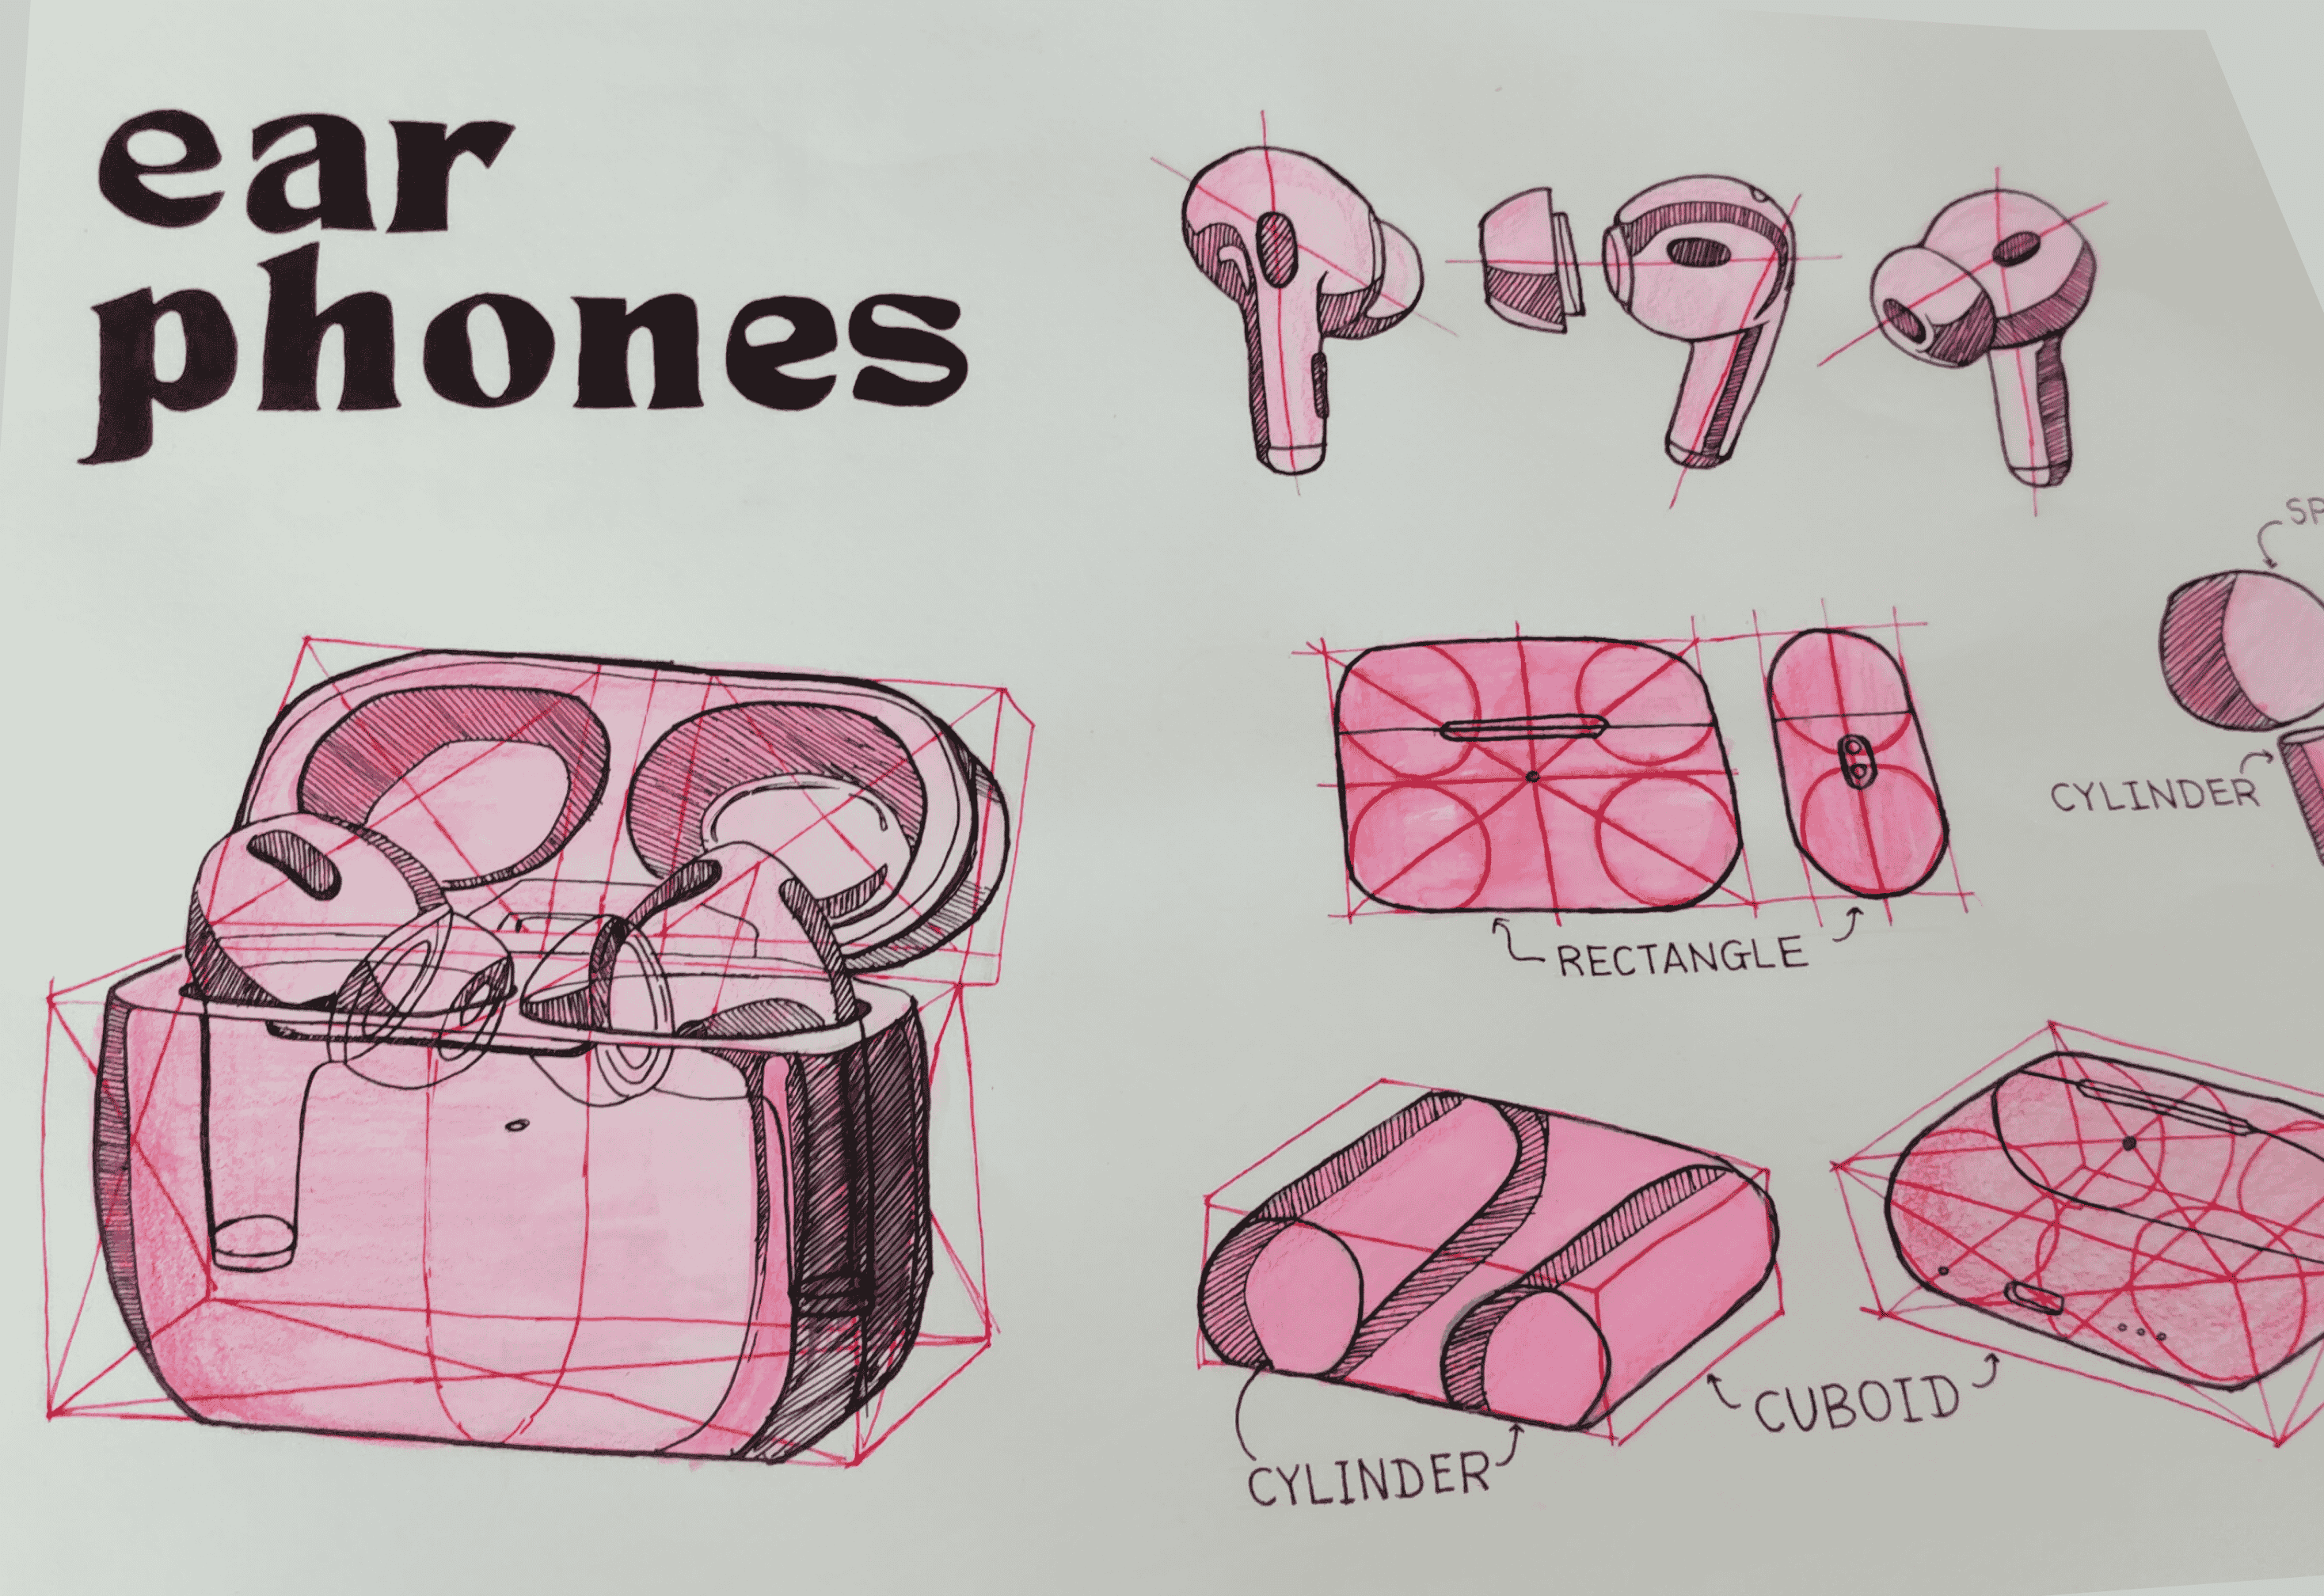 ear
phones
CYLINDER
RECTANGLE
CUBOID
CYLINDER